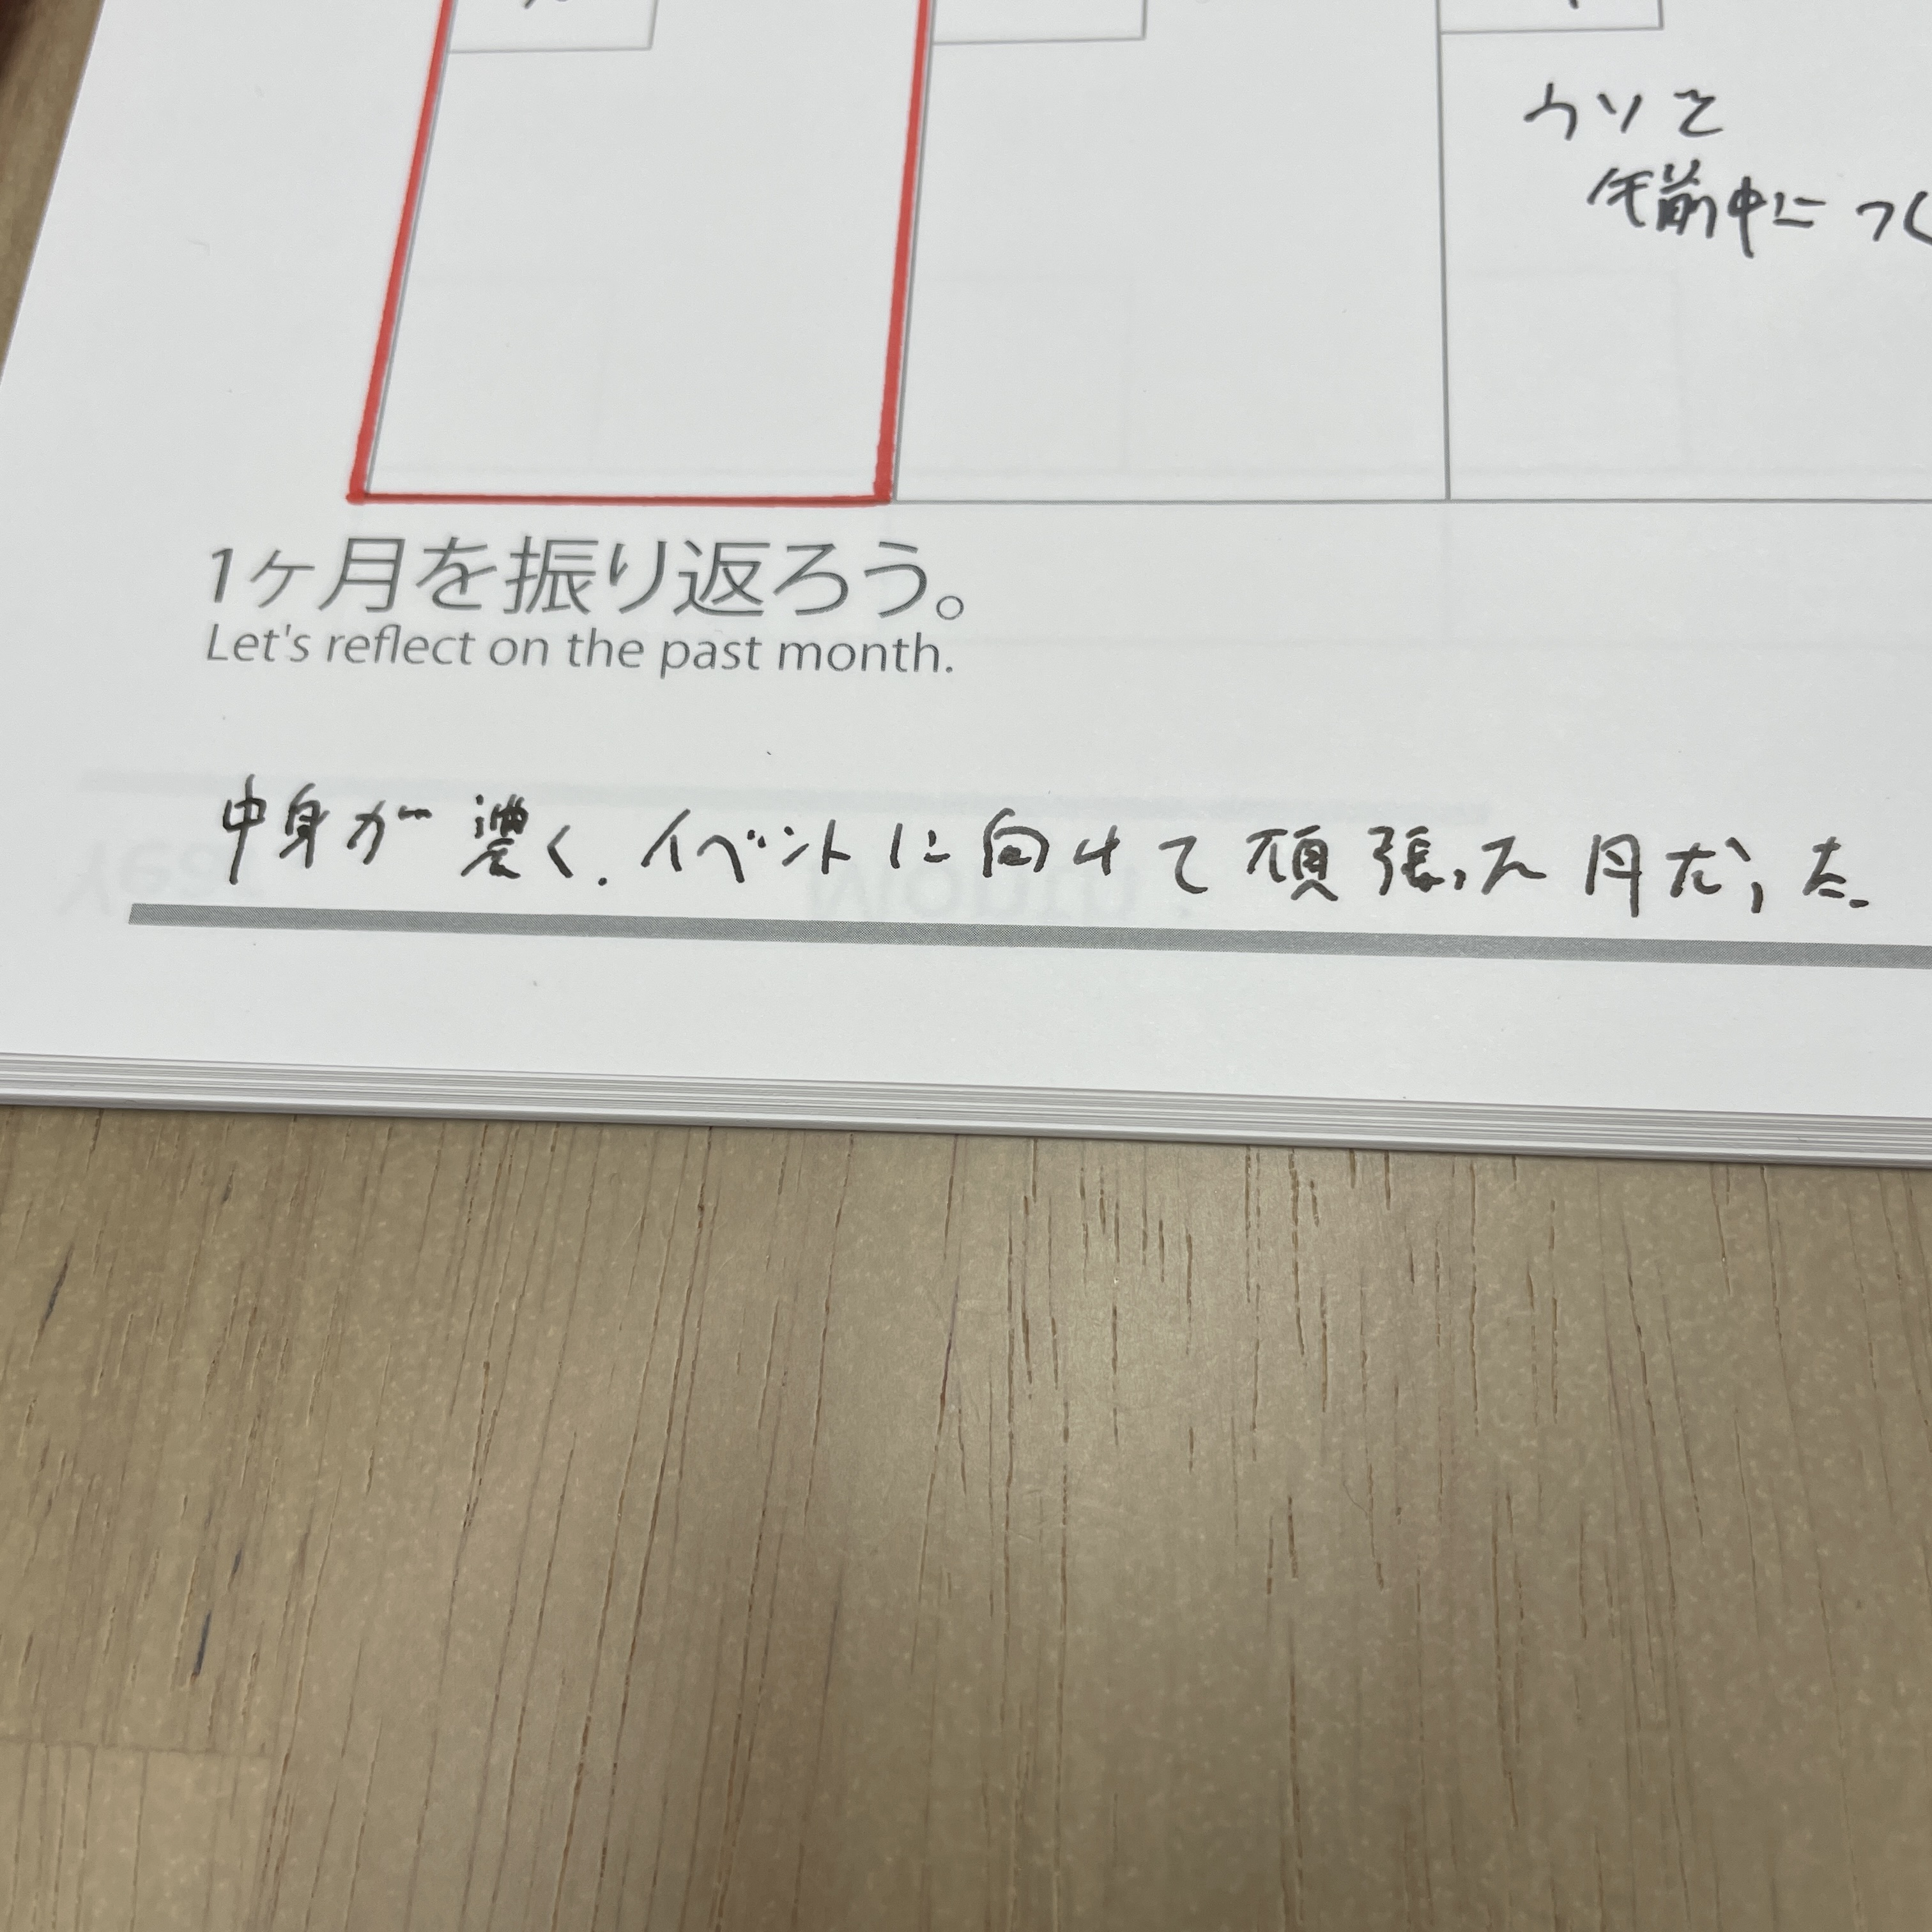 ウソを
午前中につく
1ヶ月を振り返ろう。
Let's reflect on the past month.
中身が濃く、イベントに向けて頑張った月だった。